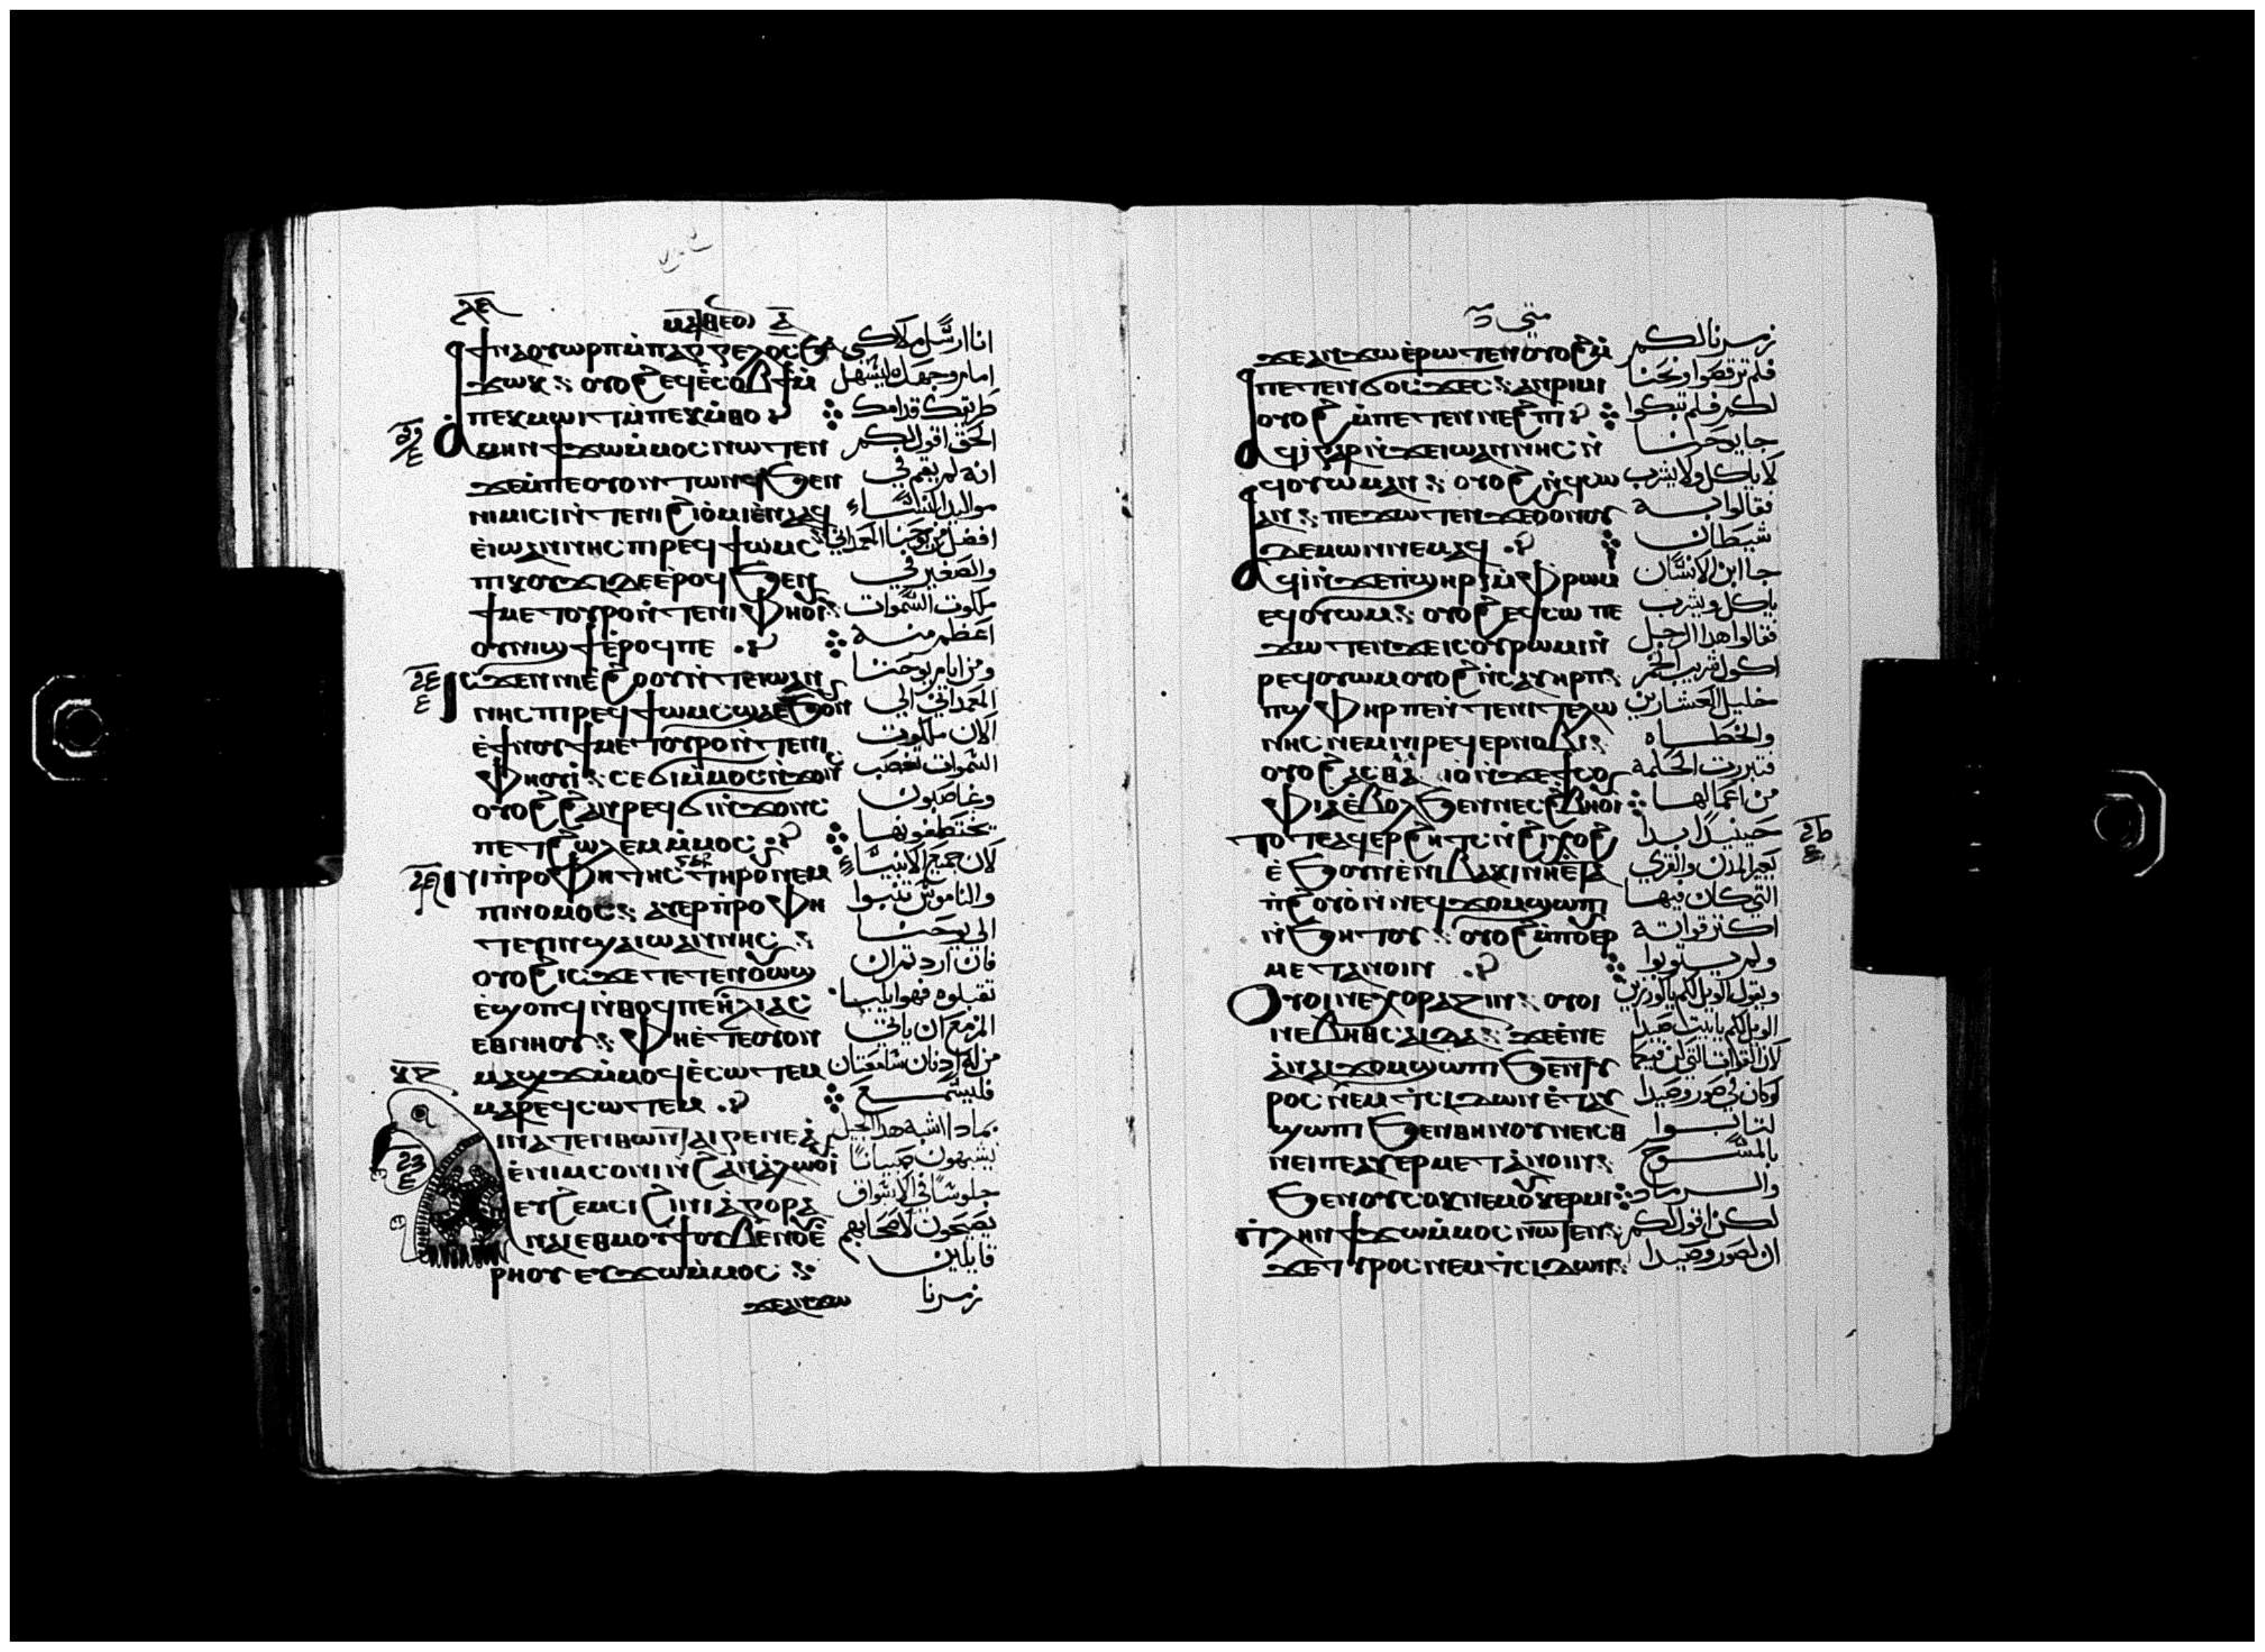 ⲙⲁⲧⲑⲉⲟⲛ
ϯⲛⲁⲟⲩⲱⲣⲡ ⲙ̀ⲡⲁⲁⲅⲅⲉⲗⲟⲥ ϧⲁ
ϫⲱⲕ ⁖ ⲟⲩⲟϩ ⲉϥⲉ̀ⲥⲟⲃϯ ⲙ̀
ⲡⲉⲕⲙⲱⲓⲧ ⲙ̀ⲡⲉⲕⲙ̀ⲑⲟ
ⲁⲙⲏⲛ ϯϫⲱ ⲙ̀ⲙⲟⲥ ⲛⲱⲧⲉⲛ
ϫⲉ ⲙ̀ⲡⲉ ⲟⲩⲟⲛ ⲧⲱⲛϥ ϧⲉⲛ
ⲛⲓⲙⲓⲥⲓ ⲛ̀ⲧⲉ ⲛⲓϩⲓⲟ̀ⲙⲓ ⲉ̀ⲛⲁⲁϥ
ⲉ̀ⲓⲱⲁⲛⲛⲏⲥ ⲡⲓⲣⲉϥϯⲱⲙⲥ
ⲡⲓⲕⲟⲩϫⲓ ⲇⲉ ⲉ̀ⲣⲟϥ ϧⲉⲛ
ϯⲙⲉⲧⲟⲩⲣⲟ ⲛ̀ⲧⲉ ⲛⲓⲫⲏⲟⲩⲓ̀
ⲟⲩⲛⲓϣϯ ⲉ̀ⲣⲟϥ ⲡⲉ
ⲓⲥϫⲉⲛ ⲛⲓⲉ̀ϩⲟⲟⲩ ⲛ̀ⲧⲉ ⲓⲱⲁⲛ
ⲛⲏⲥ ⲡⲓⲣⲉϥϯⲱⲙⲥ ϣⲁ ⲉ̀ϧⲟⲩⲛ
ⲉ̀ϯⲛⲟⲩ ϯⲙⲉⲧⲟⲩⲣⲟ ⲛ̀ⲧⲉ ⲛⲓ
ⲫⲏⲟⲩⲓ̀ ⁖ ⲥⲉϭⲓ ⲙ̀ⲙⲟⲥ ⲛ̀ϫⲟⲛⲥ
ⲟⲩⲟϩ ϩⲁⲛⲣⲉϥϭⲓⲛ̀ϫⲟⲛⲥ
ⲡⲉⲧϩⲱⲗⲉⲙ ⲙ̀ⲙⲟⲥ
ⲛⲓⲡ̀ⲣⲟⲫⲏⲧⲏⲥ ⲅⲁⲣ ⲧⲏⲣⲟⲩ ⲛⲉⲙ
ⲡⲓⲛⲟⲙⲟⲥ ⁖ ⲁⲩⲉⲣⲡ̀ⲣⲟⲫⲏ
ⲧⲉⲩⲓⲛ ϣⲁ ⲓⲱⲁⲛⲛⲏⲥ ⁖
ⲟⲩⲟϩ ⲓⲥϫⲉ ⲧⲉⲧⲉⲛⲟⲩⲱϣ
ⲉ̀ϣⲟⲡϥ ⲛ̀ⲑⲟϥ ⲡⲉ ⲏ̀ⲗⲓⲁⲥ
ⲉⲑⲛⲏⲟⲩ ⁖ ⲫⲏ ⲉ̀ⲧⲉ ⲟⲩⲟⲛ
ⲙⲁϣϫ ⲙ̀ⲙⲟϥ ⲉ̀ⲥⲱⲧⲉⲙ
ⲙⲁⲣⲉϥⲥⲱⲧⲉⲙ
ⲓⲛⲁⲧⲉⲛⲑⲱⲛ ⲧⲁⲓⲅⲉⲛⲉⲁ̀
ⲉ̀ⲛⲓⲙ ⲥⲟⲛⲓ ⲛ̀ϩⲁⲛⲁ̀ⲗⲱⲟⲩⲓ̀
ⲉⲩϩⲉⲙⲥⲓ ϩⲓ ⲛⲓⲁ̀ⲅⲟⲣⲁ
ⲛⲁⲓ ⲉⲑⲙⲟⲩϯ ⲟⲩⲃⲉ ⲛⲟⲩⲉ̀
ⲣⲏⲟⲩ ⲉⲩϫⲱ ⲙ̀ⲙⲟⲥ ⁖
ϫⲉ ⲁⲛϫⲱ
انا ارسل ملاكي
امام وجهك ليسهل
طريقك قدامك
الحق اقول لكم
انه لم يقم في
مواليد النساء
افضل من يوحنا المعمداني
والصغير في
ملكوت السموات
اعظم منه
ومن ايام يوحنا
المعمداني الي
الان ملكوت
السموات تغصب
وغاصبون
يختطفونها
لان جميع الانبيا
والناموس تنبوا
الي يوحنا
فان اردتم ان
تقبلوه فهو ايليا
المزمع ان ياتي
من له ادنان سامعتان
فليسمع
بمادا اشبه هدا الجيل
يشبهون صبيانا
جلوسا في الاسواق
يصيحون لاصحابهم
قايلين
زمرنا
متي
ϫⲉ ⲁⲛϫⲱ ⲉ̀ⲣⲱⲧⲉⲛ ⲟⲩⲟϩ ⲙ̀
ⲡⲉⲧⲉⲛϭⲟⲥϫⲉⲥ ⁖ ⲁⲛⲣⲓⲙⲓ
ⲟⲩⲟϩ ⲙ̀ⲡⲉⲧⲉⲛⲛⲉϩⲡⲓ
ⲁϥⲓ̀ ⲅⲁⲣ ⲛ̀ϫⲉ ⲓⲱⲁⲛⲛⲏⲥ ⲛ̀
ϥⲟⲩⲱⲙ ⲁⲛ ⁖ ⲟⲩⲟϩ ⲛ̀ϥⲥⲱ
ⲁⲛ ⁖ ⲡⲉϫⲱⲧⲉⲛ ϫⲉ ⲟⲩⲟⲛ ⲟⲩ
ⲇⲉⲙⲱⲛ ⲛⲉⲙⲁϥ
ⲁϥⲓ̀ ⲛ̀ϫⲉ ⲡ̀ϣⲏⲣⲓ ⲙ̀ⲫⲣⲱⲙⲓ
ⲉϥⲟⲩⲱⲙ ⁖ ⲟⲩⲟϩ ⲉϥⲥⲱ ⲡⲉ
ϫⲱⲧⲉⲛ ϫⲉ ⲓⲥ ⲟⲩⲣⲱⲙⲓ ⲛ̀
ⲣⲉϥⲟⲩⲱⲙ ⲟⲩⲟϩ ⲛ̀ⲥⲁⲩⲏⲣⲡ ⁖
ⲡϣⲫⲏⲣ ⲡⲉ ⲛ̀ⲧⲉ ⲛⲓⲧⲉⲗⲱ
ⲛⲏⲥ ⲛⲉⲙ ⲛⲓⲣⲉϥⲉⲣⲛⲟⲃⲓ ⁖
ⲟⲩⲟϩ ⲁⲥⲑⲙⲁⲓⲟ̀ ⲛ̀ϫⲉ ϯⲥⲟ
ⲫⲓⲁ ⲉ̀ⲃⲟⲗ ϧⲉⲛ ⲛⲉⲥϩ̀ⲃⲏⲟⲩⲓ̀
ⲧⲟⲧⲉ ⲁϥⲉⲣϩⲏⲧⲥ ⲛ̀ϩⲓϣⲱϣ
ⲉ̀ϧⲟⲩⲛ ⲉ̀ⲛⲓⲃⲁⲕⲓ ⲛⲏ ⲉ̀ⲧⲁ
ⲡ̀ϩⲟⲩⲟ̀ ⲛ̀ⲛⲉϥϫⲟⲙ ϣⲱⲡⲓ
ⲛ̀ϧⲏⲧⲟⲩ ⁖ ⲟⲩⲟϩ ⲙ̀ⲡⲟⲩⲉⲣ
ⲙⲉⲧⲁⲛⲟⲓⲛ
ⲟⲩⲟⲓ ⲛⲉ ⲭⲟⲣⲁⲍⲓⲛ ⁖ ⲟⲩⲟⲓ
ⲛⲉ ⲃⲏⲑⲥⲁⲓⲇⲁ ⁖ ϫⲉ ⲉ̀ⲛⲉ
ⲁ̀ ⲛⲁⲓϫⲟⲙ ϣⲱⲡⲓ ϧⲉⲛ ⲧⲩ
ⲣⲟⲥ ⲛⲉⲙ ⲧ̀ⲥⲓⲇⲱⲛ ⲉ̀ⲧⲁⲩ
ϣⲱⲡⲓ ϧⲉⲛ ⲑⲏⲛⲟⲩ ⲛⲉ ⲓⲥ
ⲛⲉ ⲡⲉ ⲁⲩⲉⲣⲙⲉⲧⲁⲛⲟⲓⲛ ⁖
ϧⲉⲛ ⲟⲩⲥⲟⲕ ⲛⲉⲙ ⲟⲩⲕⲉⲣⲙⲓ
ⲡ̀ⲗⲏⲛ ϯϫⲱ ⲙ̀ⲙⲟⲥ ⲛⲱⲧⲉⲛ ⁖
ϫⲉ ⲧⲩⲣⲟⲥ ⲛⲉⲙ ⲧ̀ⲥⲓⲇⲱⲛ ⁖
زمرنا لكم
فلم ترقصوا ونحنا
لكم فلم تبكوا
جا يوحنا
لا ياكل ولا يشرب
فقالوا به
شيطان
جا ابن الانسان
ياكل ويشرب
فقالوا هدا الرجل
اكول شريب الخمر
خليل العشارين
والخطاه
فتبررت الحكمة
من اعمالها
حينيدا ابدا
يعير المدن والقري
التي كان فيها
اكتر قواته
ولم يتوبوا
ويقول الويل لكم يا كورزين
الويل لكم يا بيت صيدا
لان القوات التي كن فيكما
لو كان في صور وصيدا
لتابوا
بالمسوح
والرماد
لكن اقول لكم
ان لصور وصيدا